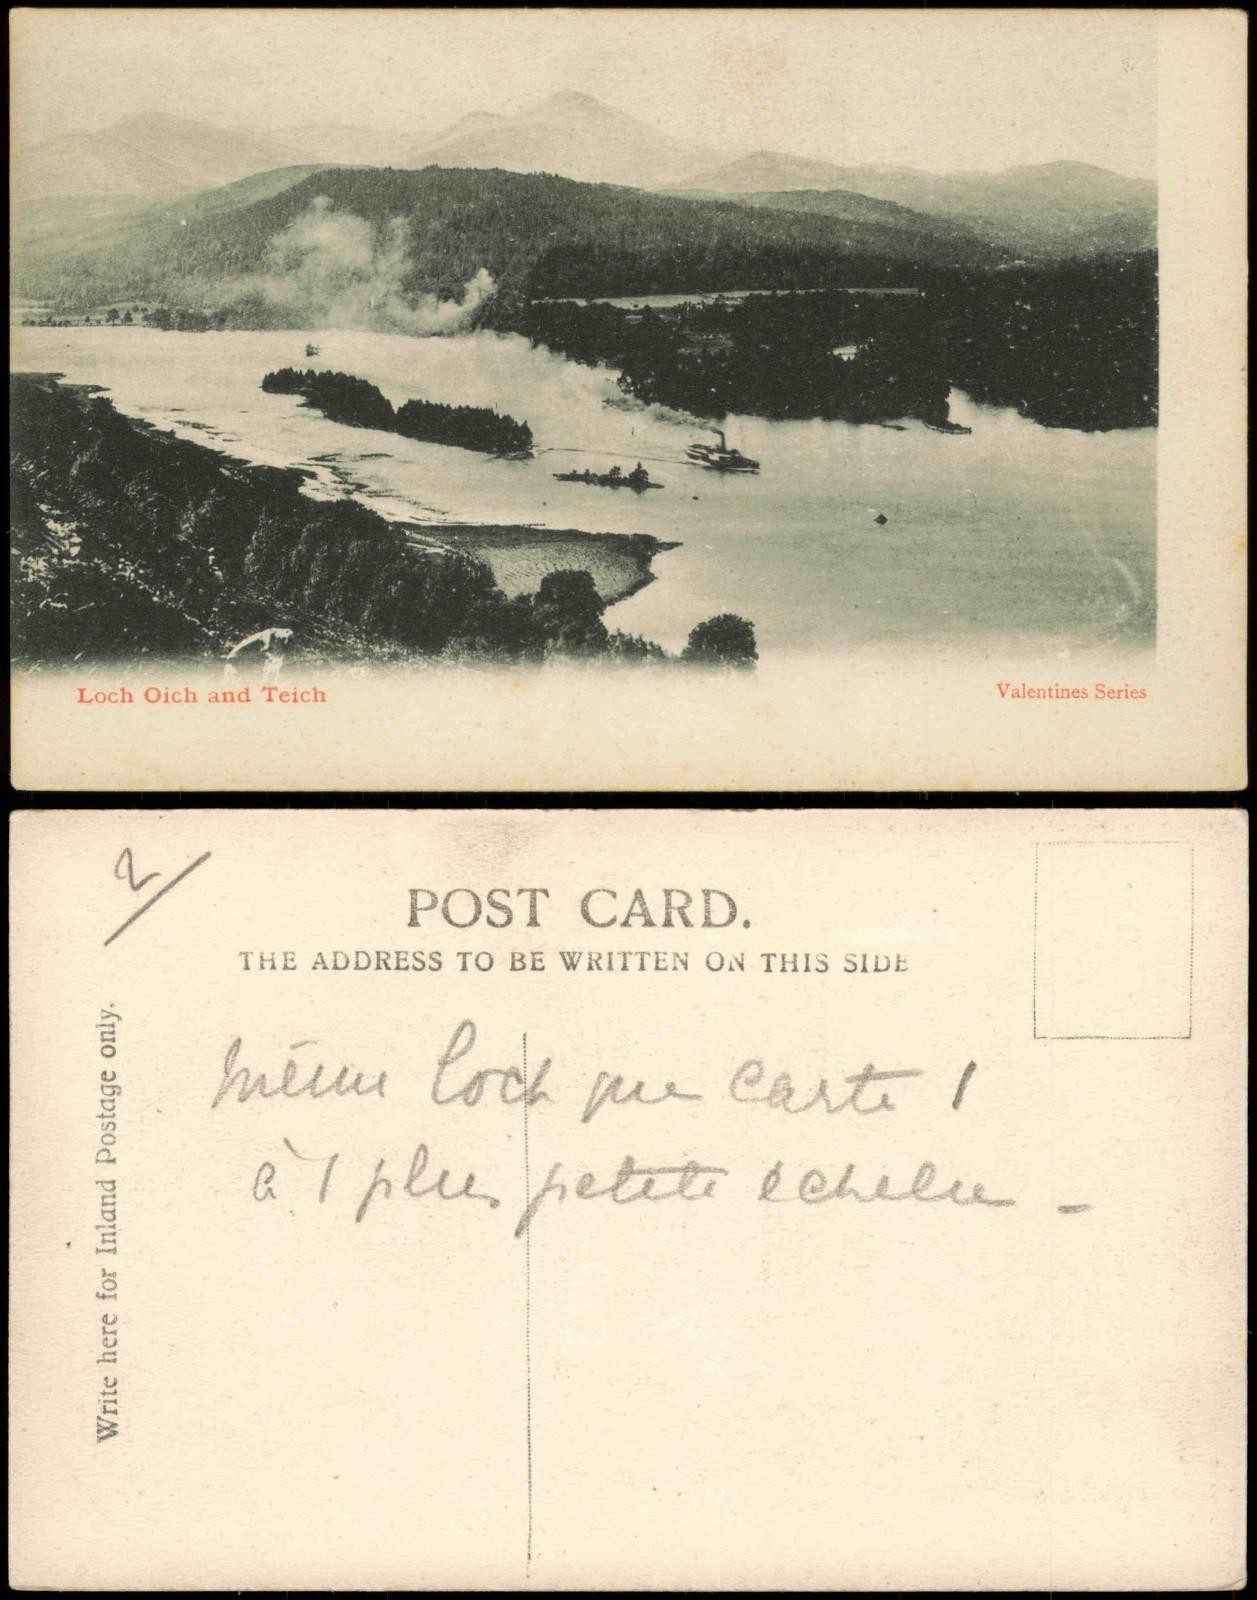 Loch Oich and Teich
Valentines Series
2
POST CARD.
THE ADDRESS TO BE WRITTEN ON THIS SIDE
Write here for Inland Postage only.
même Loch que carte 1
à 1 plus petite echelle -